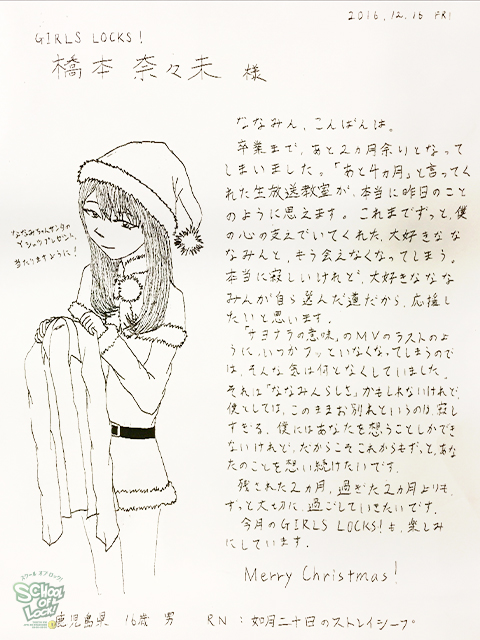 2016.12.16 FRI
GIRLS LOCKS!
橋本 奈々未 様
ななみん、こんばんは。
卒業まで、あと2ヵ月余りとなって
しまいました。「あと4ヵ月」と言ってく
れた生放送教室が、本当に昨日のこと
のように思えます。これまでずっと、僕
の心の支えでいてくれた、大好きなな
なみんと、もう会えなくなってしまう。
本当に寂しいけれど、大好きななな
みんが自ら選んだ道だから、応援し
たいと思います。
「サヨナラの意味」のMVのラストのよ
うに、いつかフッといなくなってしまうので
は、そんな気は何となくしていました。
それは「ななみんらしさ」かもしれないけれど、
僕としては、このままお別れというのは、寂し
すぎる。僕にはあなたを想うことしかでき
ないけれど、だからこそこれからもずっと、あな
たのことを想い続けたいです。
残された2ヵ月、過ぎた2ヵ月よりも、
ずっと大切に、過ごしていきたいです。
今月のGIRLS LOCKS!も、楽しみ
にしています。
Merry Christmas!
ななみちゃんサンタの
Yシャツプレゼント、
当たりますように!
スクール オブ ロック!
SCHOOL OF LOCK!
鹿児島県 16歳 男 RN:如月二十日のストレイシープ